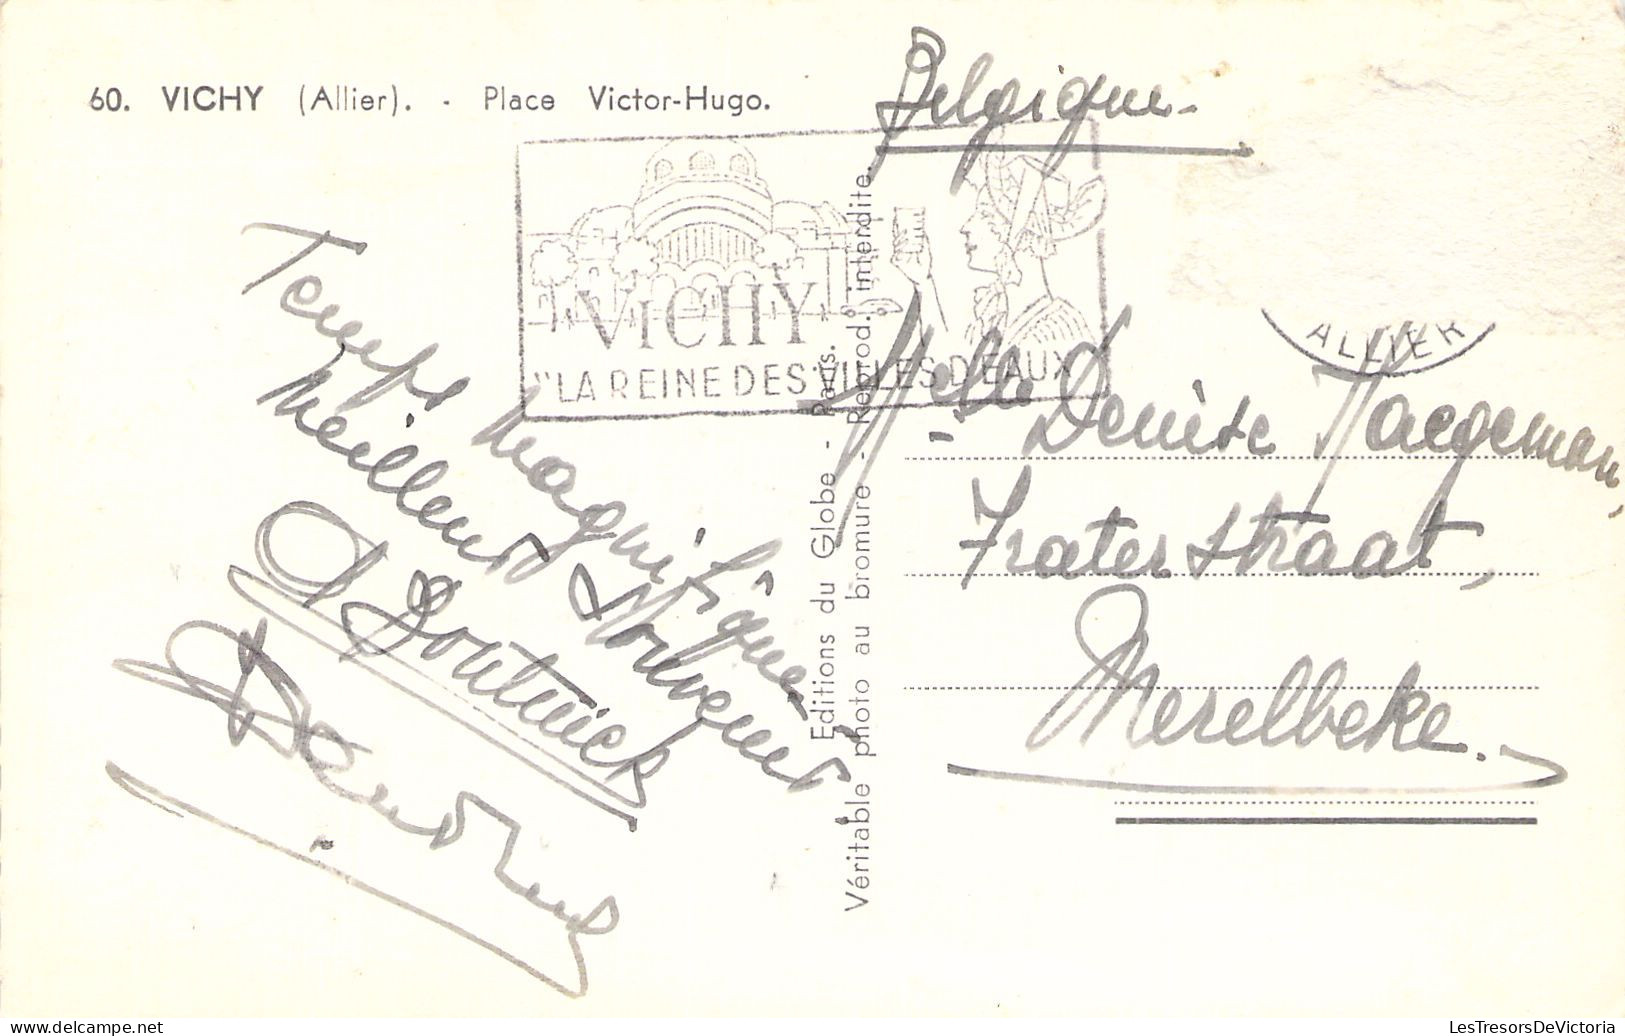 60. VICHY (Allier). - Place Victor-Hugo.
Belgique
VICHY
"LA REINE DES VILLES D'EAUX"
ALLIER
Temps magnifique
Meilleurs Souvenirs
Melle Denise Naegeman,
Fraterstraat,
Merelbeke.
Editions du Globe - Paris.
Véritable photo au bromure - Reprod. interdite.
LesTresorsDeVictoria
https://www.delcampe.net